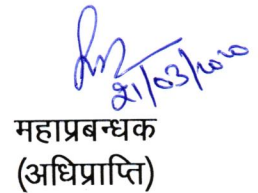 21/03/2020
महाप्रबन्धक
(अधिप्राप्ति)